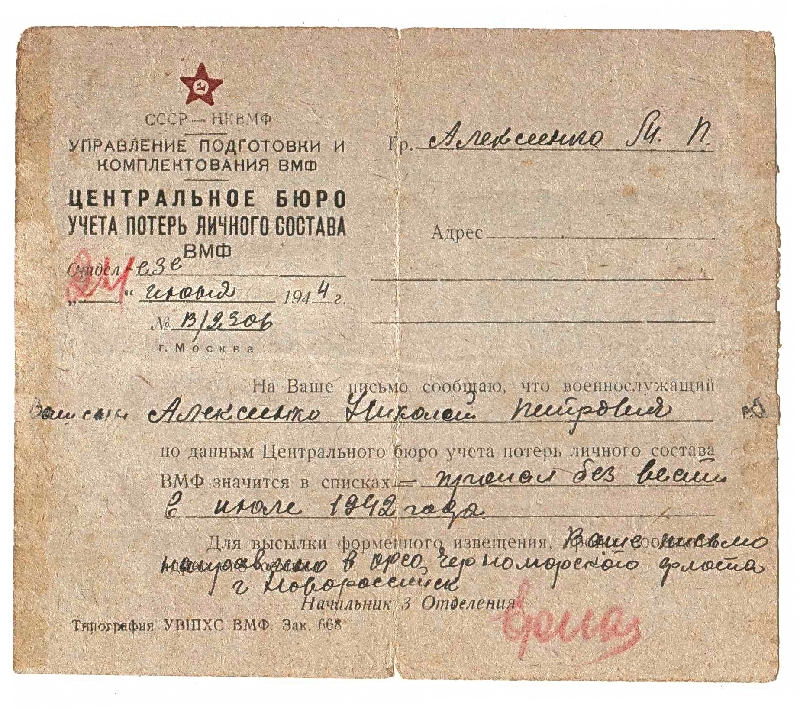 СССР — НКВМФ
УПРАВЛЕНИЕ ПОДГОТОВКИ И
КОМПЛЕКТОВАНИЯ ВМФ
ЦЕНТРАЛЬНОЕ БЮРО
УЧЕТА ПОТЕРЬ ЛИЧНОГО СОСТАВА
ВМФ
Отдел
„24“ июля 1944 г.
№ В/2306
г. Москва
Гр. Алексиенко М. П.
Адрес
На Ваше письмо сообщаю, что военнослужащий
Ваш сын Алексиенко Николай Петрович
по данным Центрального бюро учета потерь личного состава
ВМФ значится в списках — пропал без вести
в июле 1942 года
Для высылки форменного извещения, Ваше письмо
направлено в Черноморского флота
г Новороссийск
Начальник 3 Отделения
Типография УВПХС ВМФ. Зак. 668